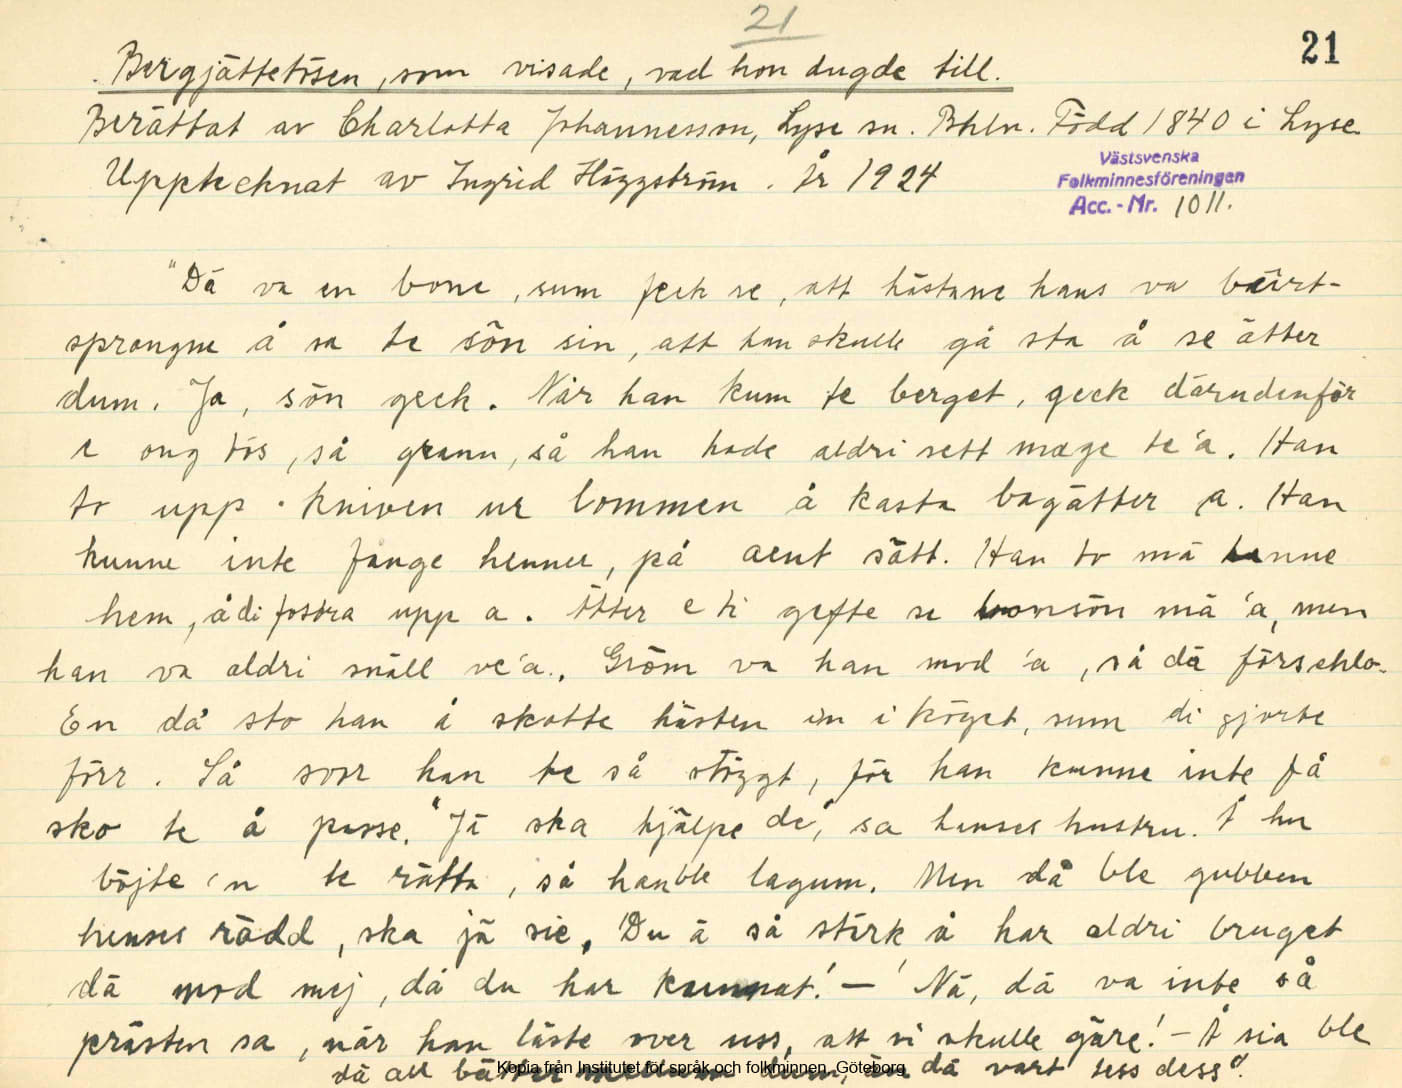 21
21
Bergjättetösen, som visade, vad hon dugde till.
Berättat av Charlotta Johannesson, Lyse sn. Bhln. Född 1840 i Lyse
Upptecknat av Ingrid Häggström. År 1924
Västsvenska
Folkminnesföreningen
Acc.-Nr. 1011.
"Dä va en bone, sum feck se, att hästane hans va bårt-
sprongne å sa te sön sin, att han skulle gå sta å se ätter
dum. Ja, sön geck. När han kum te berget, geck därudenför
e ong tös, så grann, så han hade aldri sett mage te'a. Han
to upp kniven ur lommen å kasta bagätter a. Han
kunne inte fange henner, på aent sätt. Han to mä henne
hem, å di fostra upp a. Ätter e ti gefte se bonsön mä 'a, men
han va aldri snäll ve'a. Gröm va han mod 'a, så dä förschlo.
En då sto han å skodde hästen in i köget, sum di gjorte
förr. Så svor han te så stöggt, för han kunne inte få
sko te å passe. "Jä ska hjälpe de", sa hanses hustru. Å hu
böjte 'n te rätta, så han ble lagum. Men då ble gubben
henses rädd, ska jä sie. 'Du ä så stärk å har aldri bruget
dä mod mej, då du har kunnat!' — 'Nä, dä va inte så
prästen sa, när han läste over uss, att vi skulle göre!' — Å sia ble
dä all bätter mellom dum, än dä vart tess dess".
Kopia från Institutet för språk och folkminnen, Göteborg